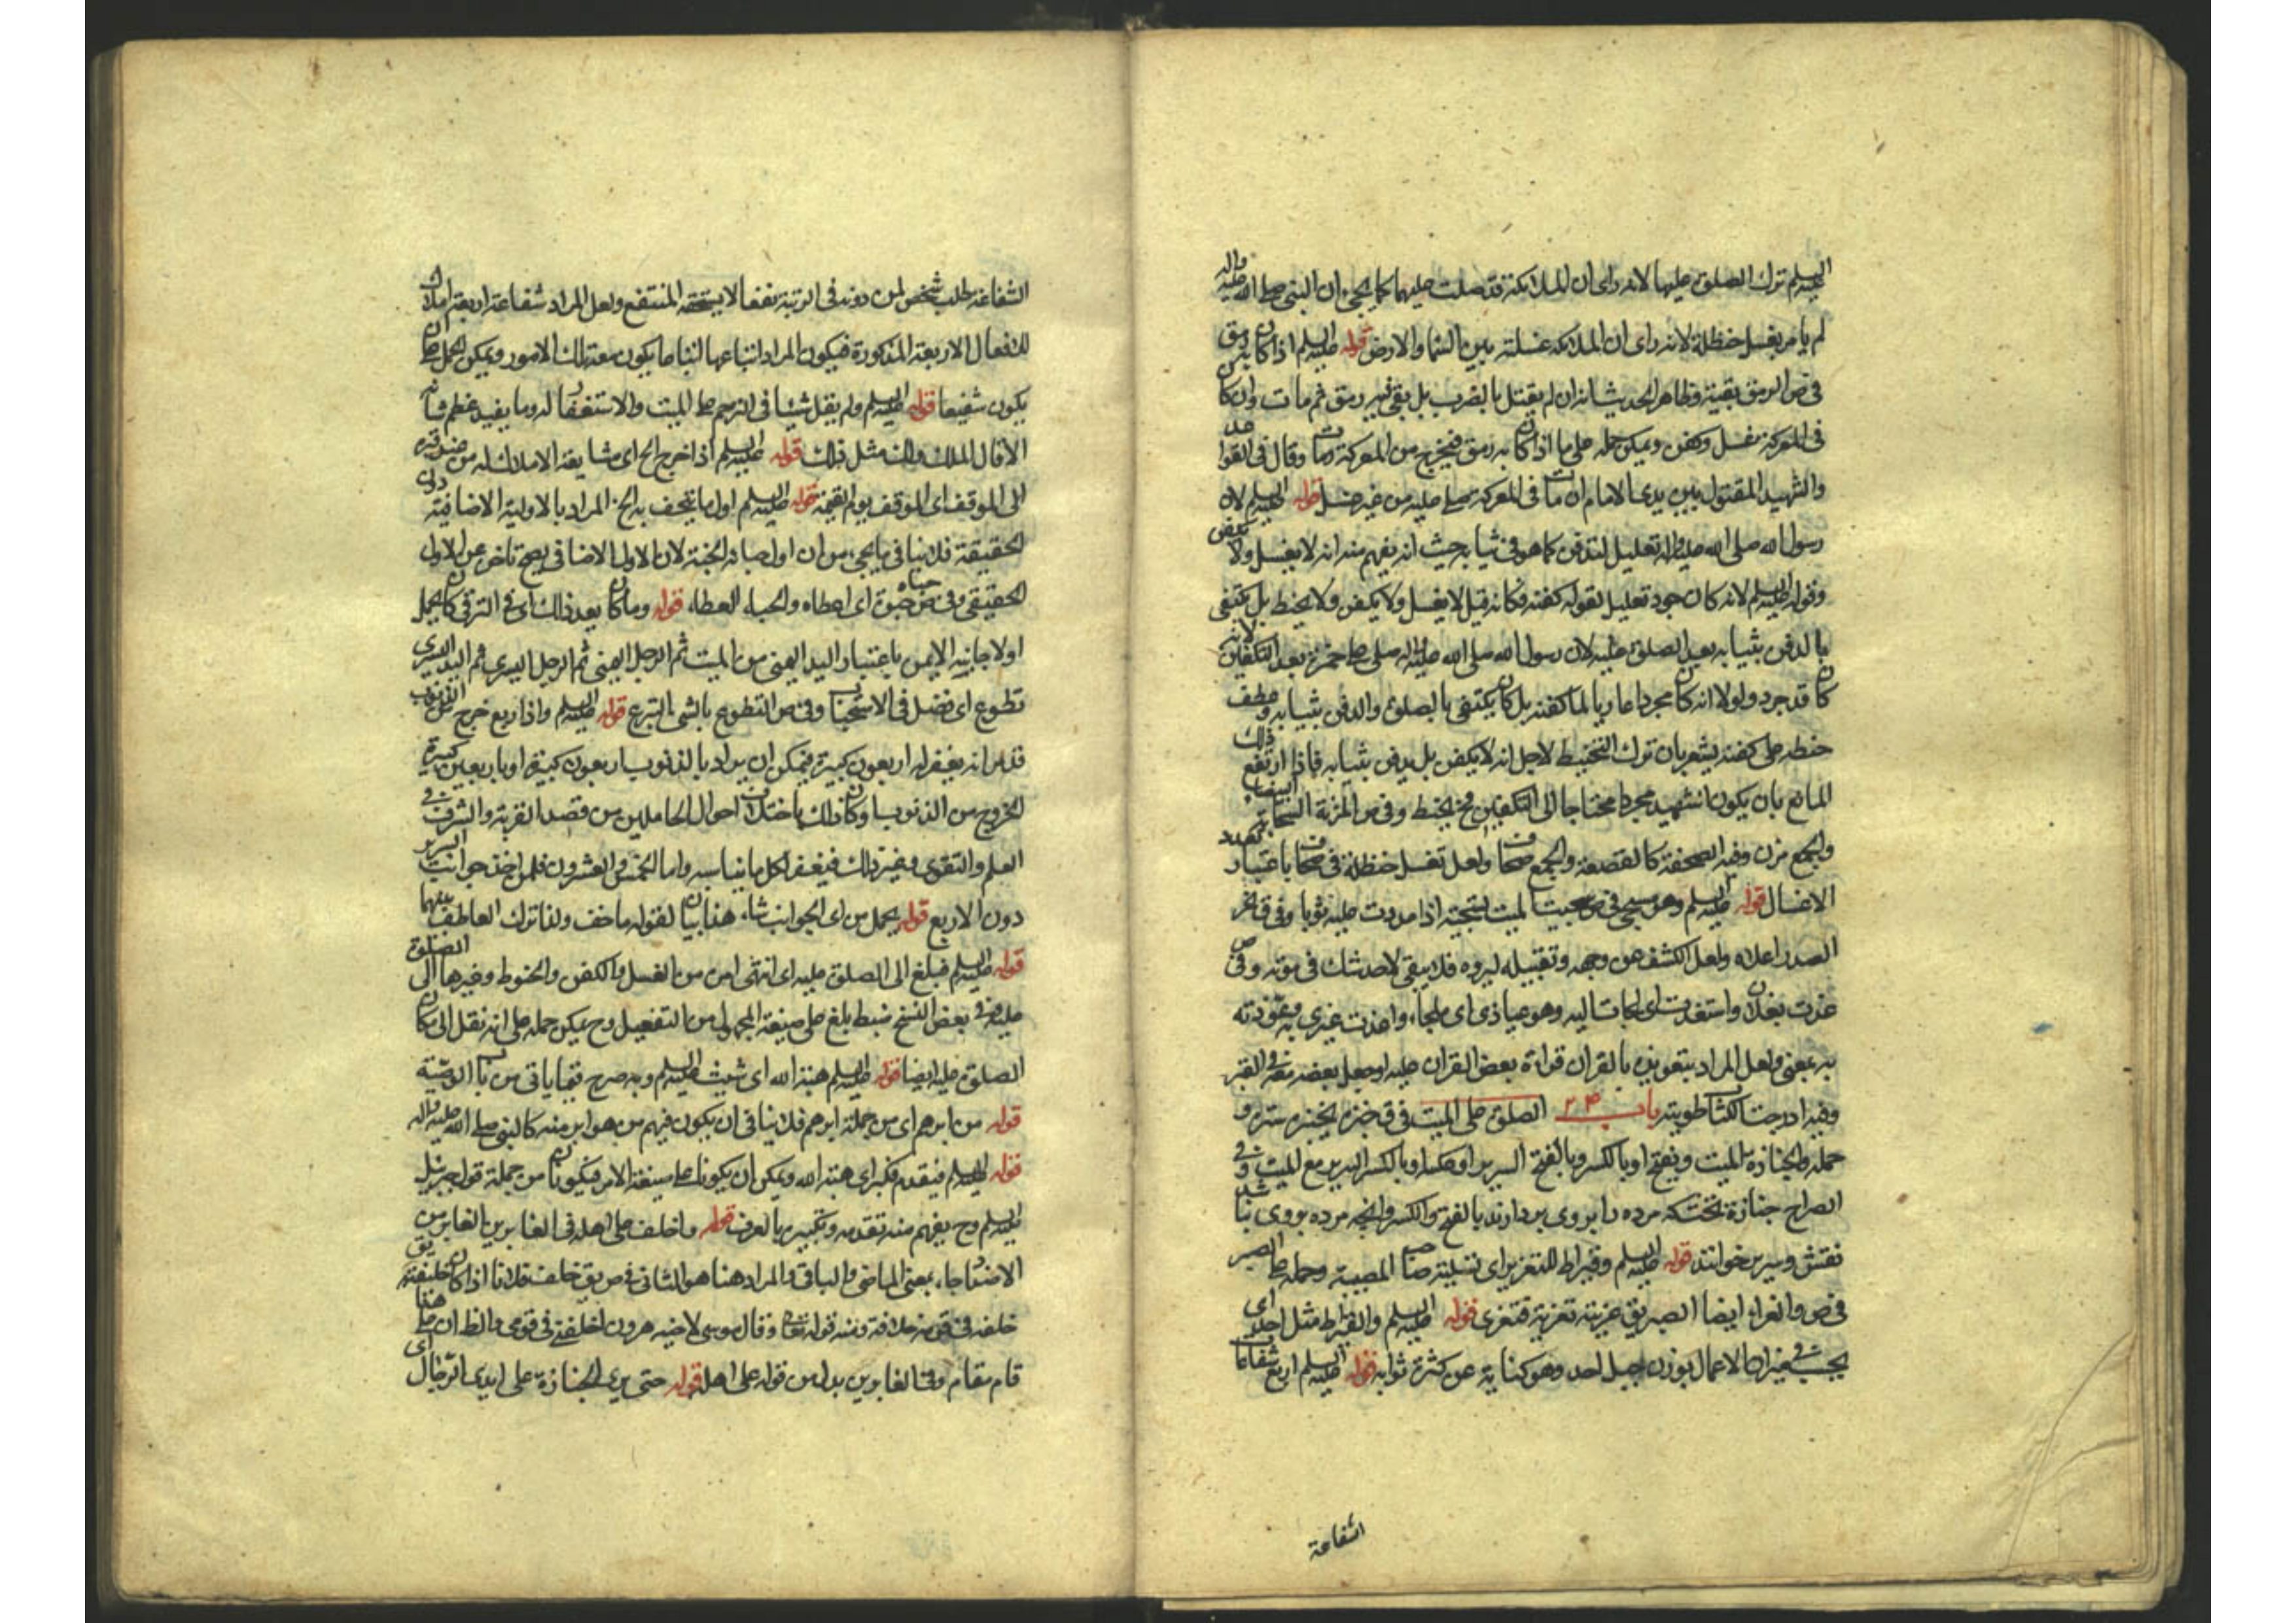 السلم ترك الصلوة عليها لانه راى ان الملائكة قد صلت عليها كما يجئ ان النبي صلى الله عليه واله
لم يامر بغسل حنظلة لانه راى ان الملائكة غسلته بين السماء والارض قوله عليه السلم اذا كان به رمق
في ص الرمق بقية وظاهر الحديث انه ان لم يقتل بالضرب بل بقى فيه رمق ثم مات وان كان
في المعركة يغسل وكفن ويمكن حمله على ما اذا كان به رمق فيخرج من المعركة ومات وقال في القواعد
والشهيد المقتول بين يدى الامام ان مات في المعركة صلى عليه من غير غسل قوله عليه السلم لان
رسول الله صلى الله عليه واله تعليل لتدفن كما هو في ثيابه حيث انه يفهم منه انه لا يغسل ولا يكفن
وقوله عليه السلم لانه كان جرد تعليل لقوله كفنه فكانه قيل لا يغسل ولا يكفن ولا يحنط بل يكتفى
بالدفن بثيابه بعد الصلوة عليه لان رسول الله صلى الله عليه واله صلى على حمزة بعد التكفين لانه
كان قد جرد ولولا انه كان مجردا عاريا لما كفنه بل كان يكتفى بالصلوة والدفن بثيابه وعطف
حنطه على كفنه يشعر بان ترك التحنيط لاجل انه لا يكفن بل يدفن بثيابه فاذا ارتفع ذلك
المانع بان يكون الشهيد مجردا محتاجا الى التكفين فح يحنط وفي ص المزنة السحابة البيضاء
والجمع مزن وفيه الصحفة كالقصعة والجمع صحاف ولعل تغسل حنظلة في صحاف باعتبار تعدد
الاغسال قوله عليه السلم وهو مسجى في ص سجيت الميت تسجية اذا مددت عليه ثوبا وفي ق نحر
الصدر اعلاه ولعل الكشف عن وجهه وتقبيله ليروه فلا يبقى لاحد شك في موته وفي ص
عذت بفلان واستعذت اى لجات اليه وهو عياذى اى ملجا، واعذت غيرى به وعوذته
به بمعنى ولعل المراد بتعويذ بالقران قراءة بعض القران عليه او جعل بعضه معه في القبر
وفيه ادرجت الكتاب طويته باب ٢٣ الصلوة على الميت في ق جنزه يجنزه ستره و
جمله والجنازة الميت ويفتح او بالكسر وبالفتح السرير او عكسه او بالكسر السرير مع الميت وفي
الصراح جنازة تختكه مرده را بروى بردارند بالفتح والكسر وانجه مرده بروى نباشد
نقش وسرير خوانند قوله عليه السلم وقيراط للتعزير اى تسلية صاحب المصيبة وحمله على الصبر
في ص والعزاء ايضا الصبر يق عزيته تعزية فتعزى قوله عليه السلم والقيراط مثل احد اى
يجب في ميزان الاعمال بوزن جبل احد وهو كناية عن كثرة ثوابه قوله عليه السلم اربع شفاعات
الشفاعة
الشفاعة طلب شخص لمن دونه في الرتبة نفعا لا يستحقه المنتفع ولعل المراد شفاعة اربعة املاك
للافعال الاربعة المذكورة فيكون المراد اتباعها اتباعا يكون معه تلك الامور ويمكن الحمل على ان
يكون شفيعا قوله عليه السلم ولم يقل شيئا في الترحم على الميت والاستغفار له وما يفيد عظم شانه
الا قال الملك ولك مثل ذلك قوله عليه السلم اذا خرج الخ اى مشايعة الاملاك له من
الى الموقف اى الموقف يوم القيمة قوله عليه السلم اول ما يتحف به الخ المراد بالاولية الاضافية دون
الحقيقة فلا ينافي ما يجئ من ان اول حبائه الجنة لان الاول الاضافي يصح تاخره عن الاول
الحقيقي وفي ص حباه حبوة اى اعطاه والحباء العطاء، قوله وما كان بعد ذلك اى في الترقي كان يحمل
اولا جانبه الايمن باعتبار اليد اليمنى من الميت ثم الرجل اليمنى ثم الرجل اليسرى ثم اليد اليسرى
تطوع اى فضل في الاستحباب وفي ص التطوع بالشئ التبرع قوله عليه السلم واذا ربع خرج من الذنوب
قد مر انه يغفر له اربعون كبيرة فيمكن ان يراد بالذنوب اربعون كبيرة او باربعين كبيرة
الخروج من الذنوب او كان ذلك باختلاف احوال الحاملين من قصد القربة والشرف في
العلم والتقوى وغير ذلك فيغفر لكل ما يناسبه واما الخمس والعشرون فلمن اخذ جوانب السرير
دون الاربع قوله يحمل من اى الجوانب شاء، هذا بيان لقوله ما خف ولذا ترك العاطف بينهما
قوله عليه السلم فبلغ الى الصلوة عليه اى انتهى امره من الغسل والكفن والحنوط وغيرها الى الصلوة
عليه وفي بعض النسخ ضبط بلغ على صيغة المجهول من التفعيل وح يمكن حمله على انه نقل الى مكان
الصلوة عليه ايضا قوله عليه السلم هبة الله اى شيث عليه السلم وبه صرح فيما ياتي من باب الوصية
قوله من ابرهم اى من جملة ابرهم فلا ينافي ان يكون فيهم من هو ابر منه كالنبي صلى الله عليه واله
قوله عليه السلم فيقدم فكبر اى هبة الله ويمكن ان يكونا على صيغة الامر فيكونان من جملة قول جبرئيل
عليه السلم وح يفهم منه تقدمه وتكبيره بالعرف قوله واخلف على اهله في الغابرين الغابر من
الاضداد جاء، بمعنى الماضي والباقي والمراد هنا هو الثاني في ص يق خلف فلان فلانا اذا كان خليفته يق
خلفه في قومه خلافة ومنه قوله تعالى وقال موسى لاخيه هرون اخلفني في قومي والظ ان على هنا
قام مقام وفي الغابرين بدل من قوله على اهله قوله حتى يرى الجنازة على ايدى الرجال اى